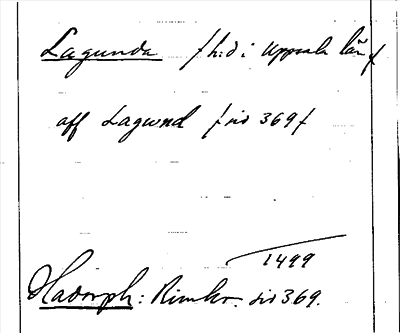 Lagunda /h:d i Uppsala län/
aff Lagwnd /sid 369/
1499
Hadorph: Rimkr. sid 369.